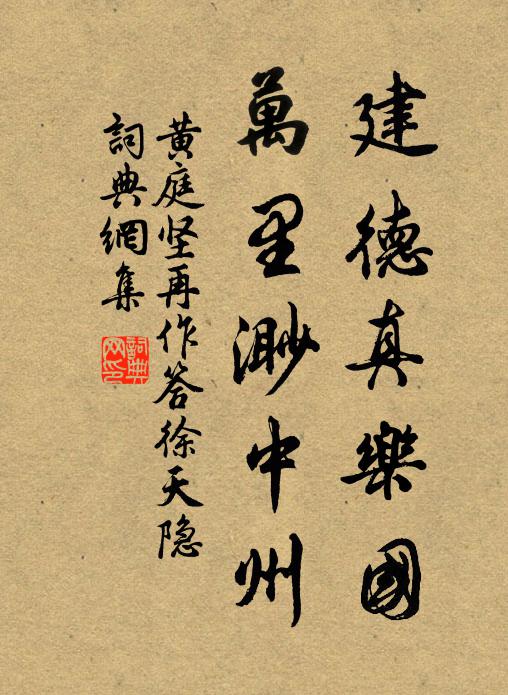 建德真樂國
萬里渺中州
黄庭坚再作答徐天隐
詞典網集
詞典
网印